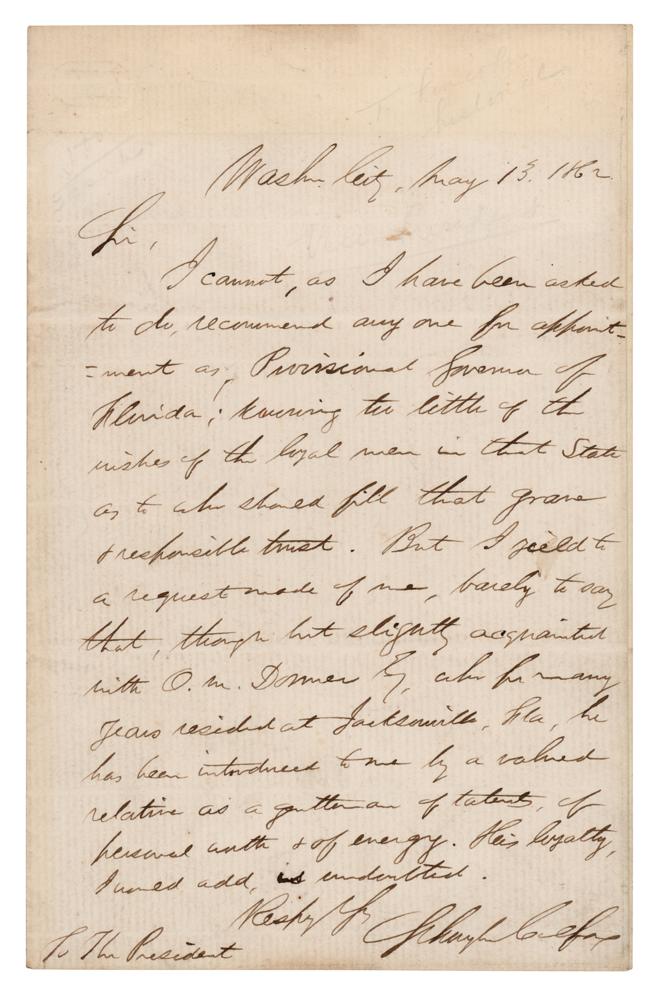 Washn City, May 13. 1862.
Sir,
I cannot, as I have been asked
to do, recommend any one for appoint-
=ment as Provisional Governor of
Florida; knowing too little of the
wishes of the loyal men in that State
as to who should fill that grave
& responsible trust. But I yield to
a request made of me, barely to say
that, though but slightly acquainted
with O. M. Dorman Esq, who for many
years resided at Jacksonville, Fla, he
has been introduced to me by a valued
relative as a gentleman of talents, of
personal worth & of energy. His loyalty,
I need add, is undoubted.
Respy Yrs
Schuyler Colfax
To The President